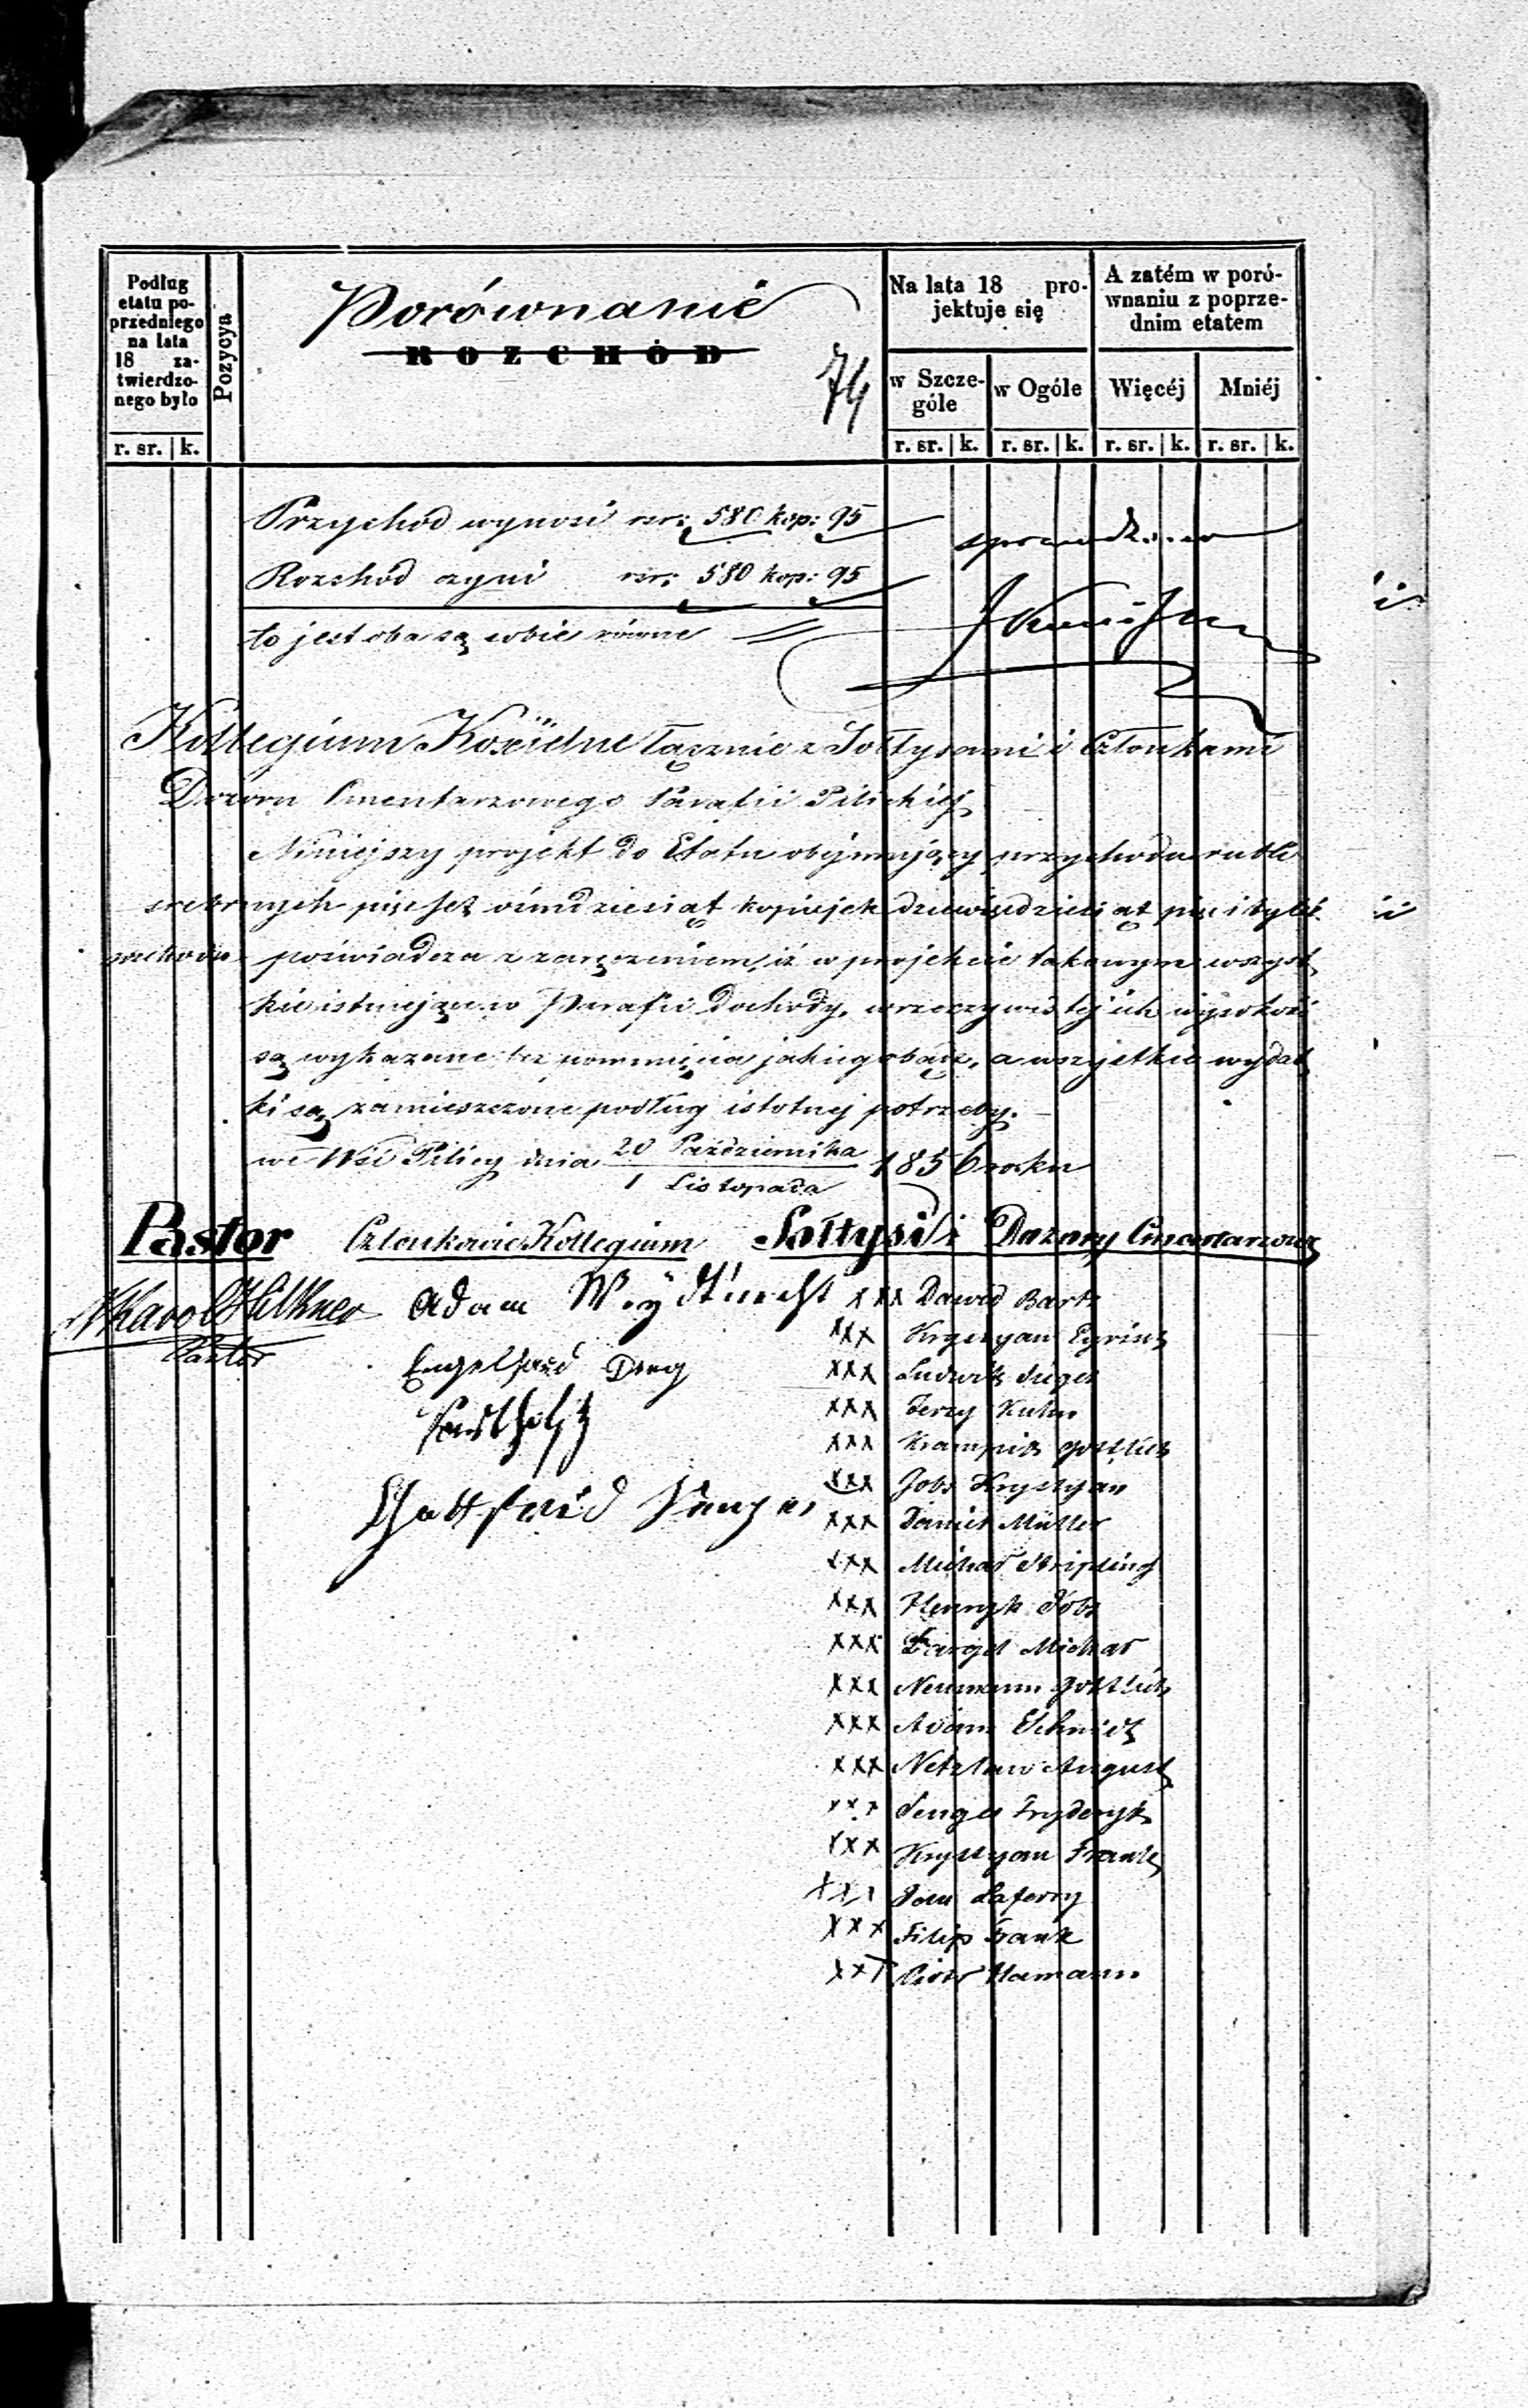 Podług
etatu po-
przedniego
na lata
18 za-
twierdzo-
nego było
Pozycya
Porównanie
ROZCHÓD
74
Na lata 18 pro-
jektuje się
A zatém w poró-
wnaniu z poprze-
dnim etatem
w Szcze-
góle
w Ogóle
Więcéj
Mniéj
r. sr. k.
r. sr. k. r. sr. k. r. sr. k. r. sr. k.
Przychód wynosi rsr: 580 kop: 95
Rozchód czyni rsr: 580 kop: 95
to jest oba są sobie równe
Kollegium Kościelne łącznie z Sołtysami i Członkami
Dozoru Cmentarzowego Parafii Pilickiej
Niniejszy projekt do Etatu obejmujący przychodu rubli
srebrnych pięćset ośmdziesiąt kopiejek dziewięćdziesiąt pięć i tyleż
rozchodu poświadcza z zaręczeniem, iż w projekcie takowym wszyst
kie istniejące w Parafii Dochody, w rzeczywistej ich wysokości
są wykazane bez pominięcia jakiegobądź, a wszystkie wydat
ki są zamieszczone podług istotnej potrzeby.
we Wsi Pilicy dnia 20 Października
1 Listopada 1856 roku
Pastor Członkowie Kollegium Sołtysi i Dozory Cmentarzowe
Pastor
Adam
Engelhard
Gottfried
xxx Dawid Bartz
xxx Krystyan
xxx Ludwik
xxx Jerzy Kuhn
xxx Krampitz Gottlieb
xxx Jobs Krystyan
xxx Daniel Müller
xxx Michał Stripling
xxx Henryk Jobs
xxx Michał
xxx Neumann Gottlieb
xxx Adam Schmidt
xxx August
xxx Fryderyk
xxx Krystyan Frank
xxx Jan
xxx Filip Frank
xxx Piotr Hamann